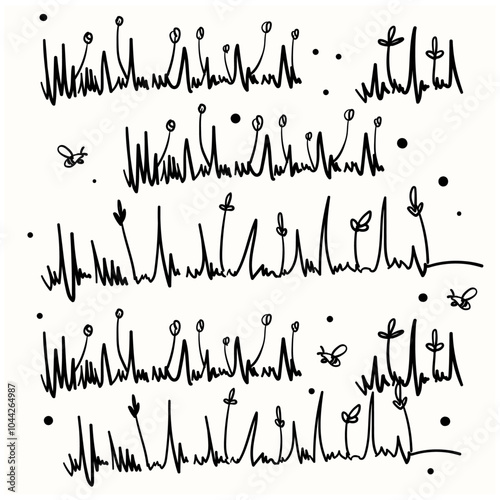 Adobe Stock | #1044264987